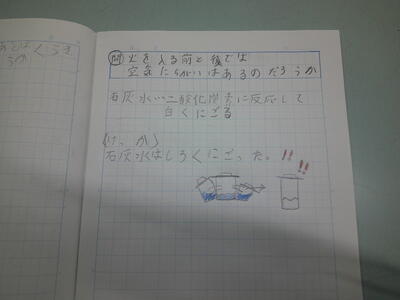 問 火を入る前と後では
空気にちがいはあるのだろうか
石灰水い二酸化炭素に反応して
白くにごる
(けっか)
石灰水はしろくにごった。!! !!